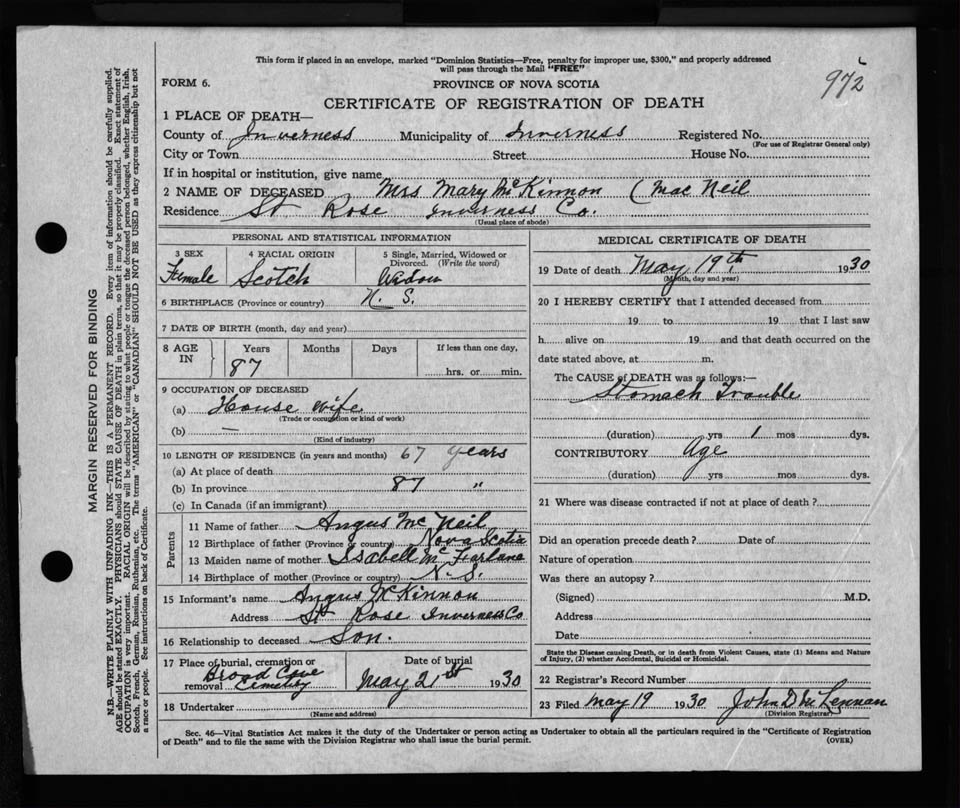 This form if placed in an envelope, marked "Dominion Statistics—Free, penalty for improper use, $300," and properly addressed
will pass through the Mail "FREE"
972
FORM 6.
PROVINCE OF NOVA SCOTIA
CERTIFICATE OF REGISTRATION OF DEATH
1 PLACE OF DEATH—
County of Inverness Municipality of Inverness Registered No.
(For use of Registrar General only)
City or Town Street House No.
If in hospital or institution, give name
2 NAME OF DECEASED Mrs Mary McKinnon (Mac Neil
Residence St Rose Inverness Co.
(Usual place of abode)
PERSONAL AND STATISTICAL INFORMATION
3 SEX 4 RACIAL ORIGIN 5 Single, Married, Widowed or
Divorced. (Write the word)
Female Scotch Widow
6 BIRTHPLACE (Province or country) N. S.
7 DATE OF BIRTH (month, day and year)
8 AGE IN Years Months Days If less than one day,
87 hrs. or min.
9 OCCUPATION OF DECEASED
(a) House wife
(Trade or occupation or kind of work)
(b) —
(Kind of industry)
10 LENGTH OF RESIDENCE (in years and months) 67 years
(a) At place of death
(b) In province 87 "
(c) In Canada (if an immigrant)
Parents
11 Name of father Angus Mc Neil
12 Birthplace of father (Province or country) Nova Scotia
13 Maiden name of mother Isabell McFarlane
14 Birthplace of mother (Province or country) N. S.
15 Informant's name Angus McKinnon
Address St Rose Inverness Co
16 Relationship to deceased Son.
17 Place of burial, cremation or removal Broad Cove Cemetry
Date of burial May 21st 1930
18 Undertaker
(Name and address)
MEDICAL CERTIFICATE OF DEATH
19 Date of death May 19th 1930
(Month, day and year)
20 I HEREBY CERTIFY that I attended deceased from
19 to 19 that I last saw
h alive on 19 and that death occurred on the
date stated above, at m.
The CAUSE of DEATH was as follows:—
Stomach Trouble
(duration) yrs 1 mos dys.
CONTRIBUTORY Age
(duration) yrs mos dys.
21 Where was disease contracted if not at place of death?
Did an operation precede death? Date of
Nature of operation
Was there an autopsy?
(Signed) M.D.
Address
Date
State the Disease causing Death, or in death from Violent Causes, state (1) Means and Nature
of Injury, (2) whether Accidental, Suicidal or Homicidal.
22 Registrar's Record Number
23 Filed May 19 1930 John D McLennan
(Division Registrar)
Sec. 46—Vital Statistics Act makes it the duty of the Undertaker or person acting as Undertaker to obtain all the particulars required in the "Certificate of Registration
of Death" and to file the same with the Division Registrar who shall issue the burial permit.
(OVER)
MARGIN RESERVED FOR BINDING
N.B.—WRITE PLAINLY WITH UNFADING INK—THIS IS A PERMANENT RECORD. Every item of information should be carefully supplied.
AGE should be stated EXACTLY. PHYSICIANS should STATE CAUSE OF DEATH in plain terms, so that it may be properly classified. Exact statement of
OCCUPATION is very important. RACIAL ORIGIN will be described by stating to what people or tongue the deceased person belonged, whether English, Irish,
Scotch, French, German, Russian, Ruthenian, etc. The terms "AMERICAN" or "CANADIAN" SHOULD NOT BE USED as they express citizenship but not
a race or people. See instructions on back of Certificate.